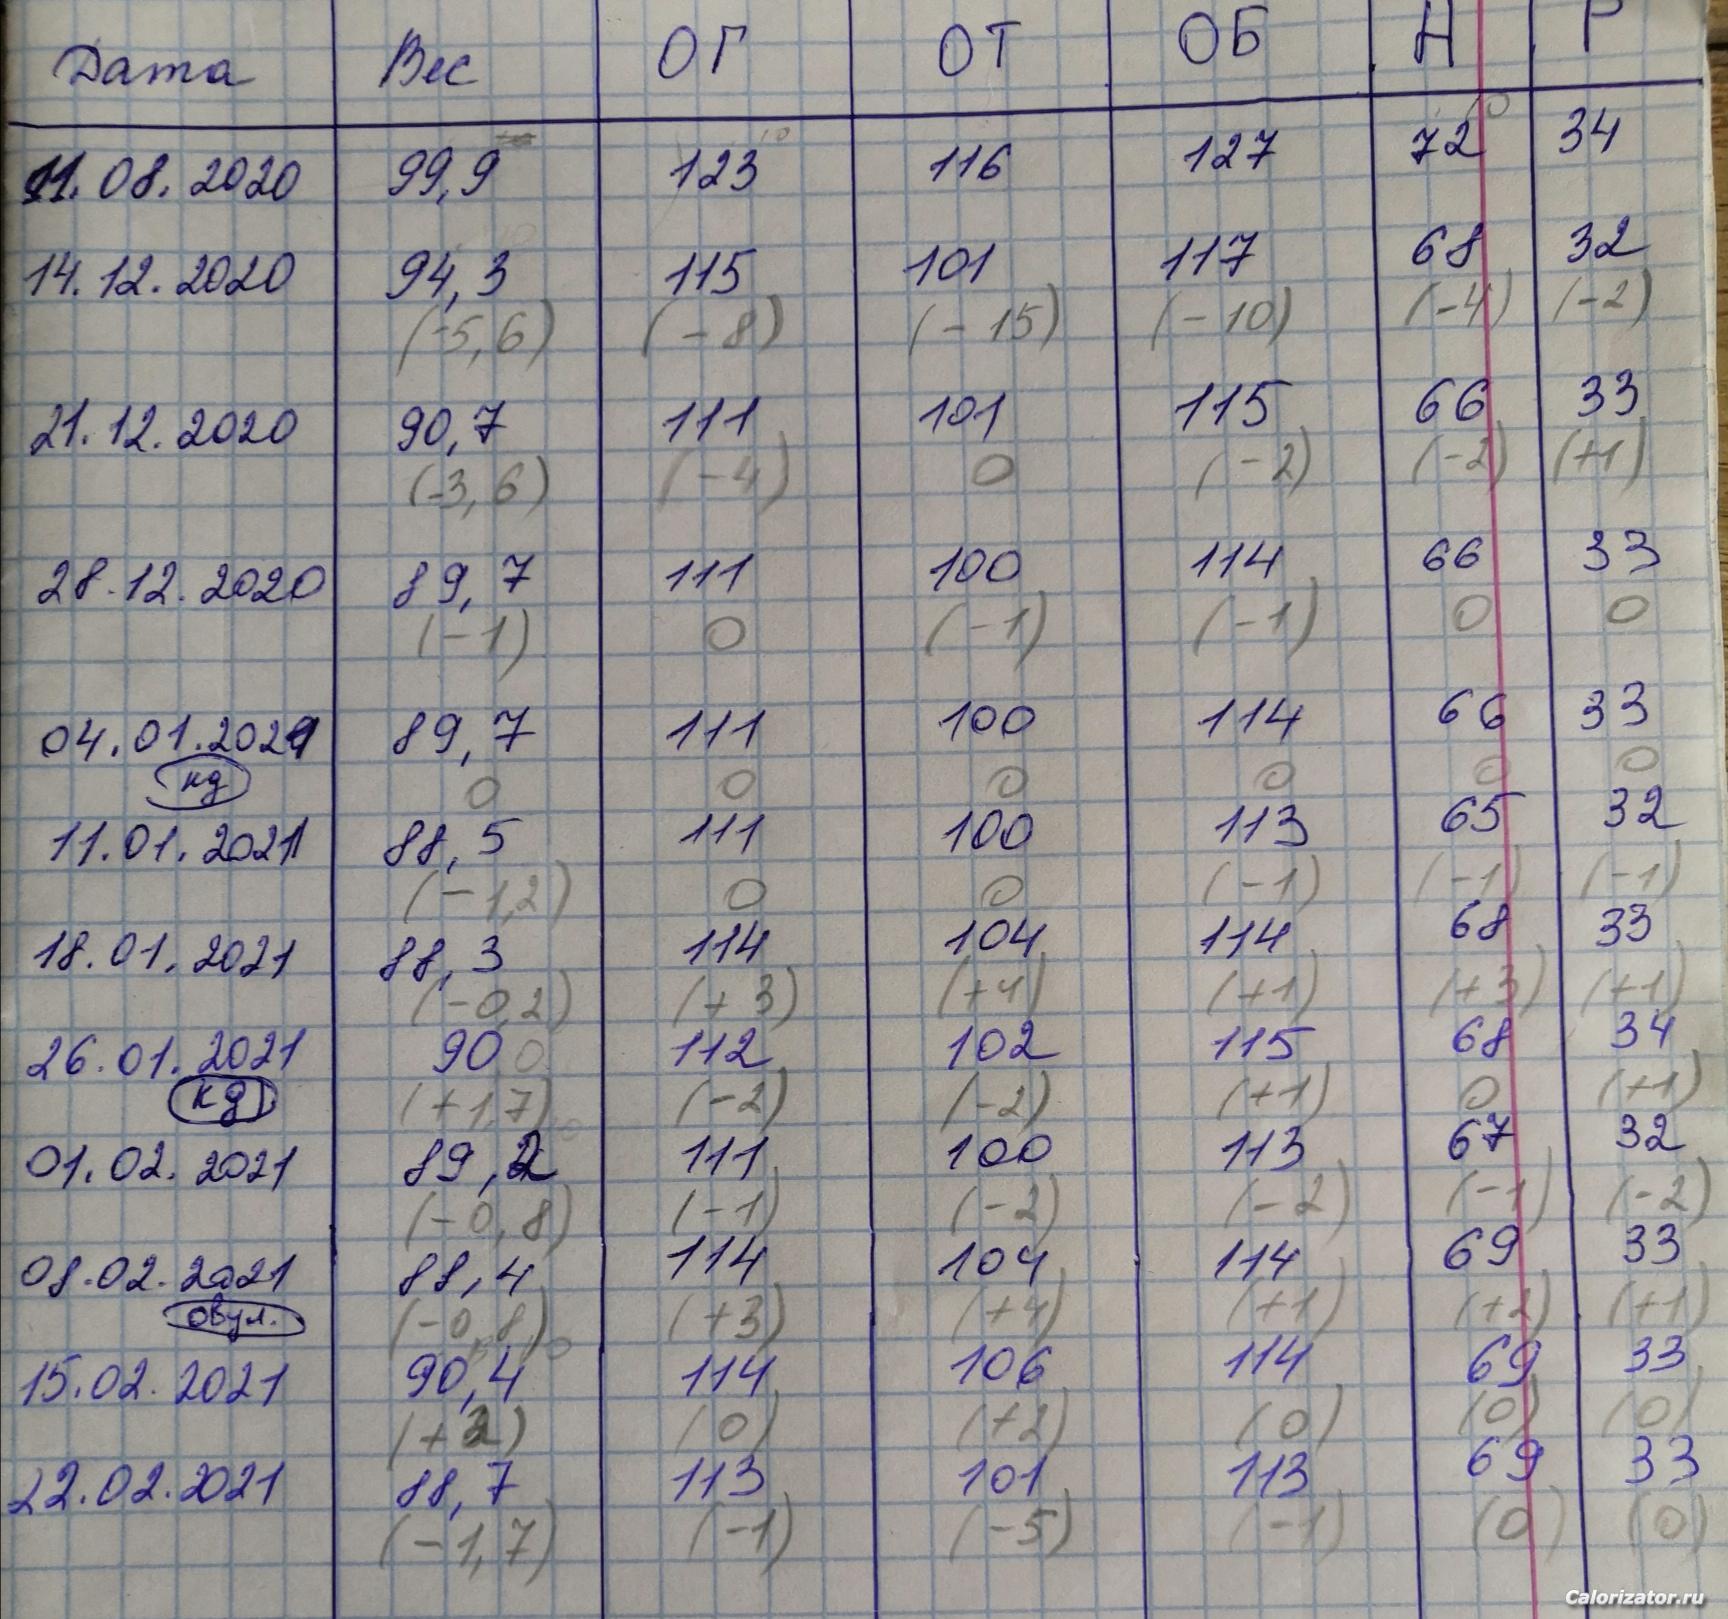 Дата Вес ОГ ОТ ОБ Н Р
11.08.2020 99,9 123 116 127 72 34
14.12.2020 94,3 115 101 117 68 32
(-5,6) (-8) (-15) (-10) (-4) (-2)
21.12.2020 90,7 111 101 115 66 33
(-3,6) (-4) 0 (-2) (-2) (+1)
28.12.2020 89,7 111 100 114 66 33
(-1) 0 (-1) (-1) 0 0
04.01.2021 89,7 111 100 114 66 33
кд 0 0 0 0 0 0
11.01.2021 88,5 111 100 113 65 32
(-1,2) 0 0 (-1) (-1) (-1)
18.01.2021 88,3 114 104 114 68 33
(-0,2) (+3) (+4) (+1) (+3) (+1)
26.01.2021 90 112 102 115 68 34
кд (+1,7) (-2) (-2) (+1) 0 (+1)
01.02.2021 89,2 111 100 113 67 32
(-0,8) (-1) (-2) (-2) (-1) (-2)
08.02.2021 88,4 114 104 114 69 33
овул. (-0,8) (+3) (+4) (+1) (+2) (+1)
15.02.2021 90,4 114 106 114 69 33
(+2) (0) (+2) (0) (0) (0)
22.02.2021 88,7 113 101 113 69 33
(-1,7) (-1) (-5) (-1) (0) (0)
Calorizator.ru